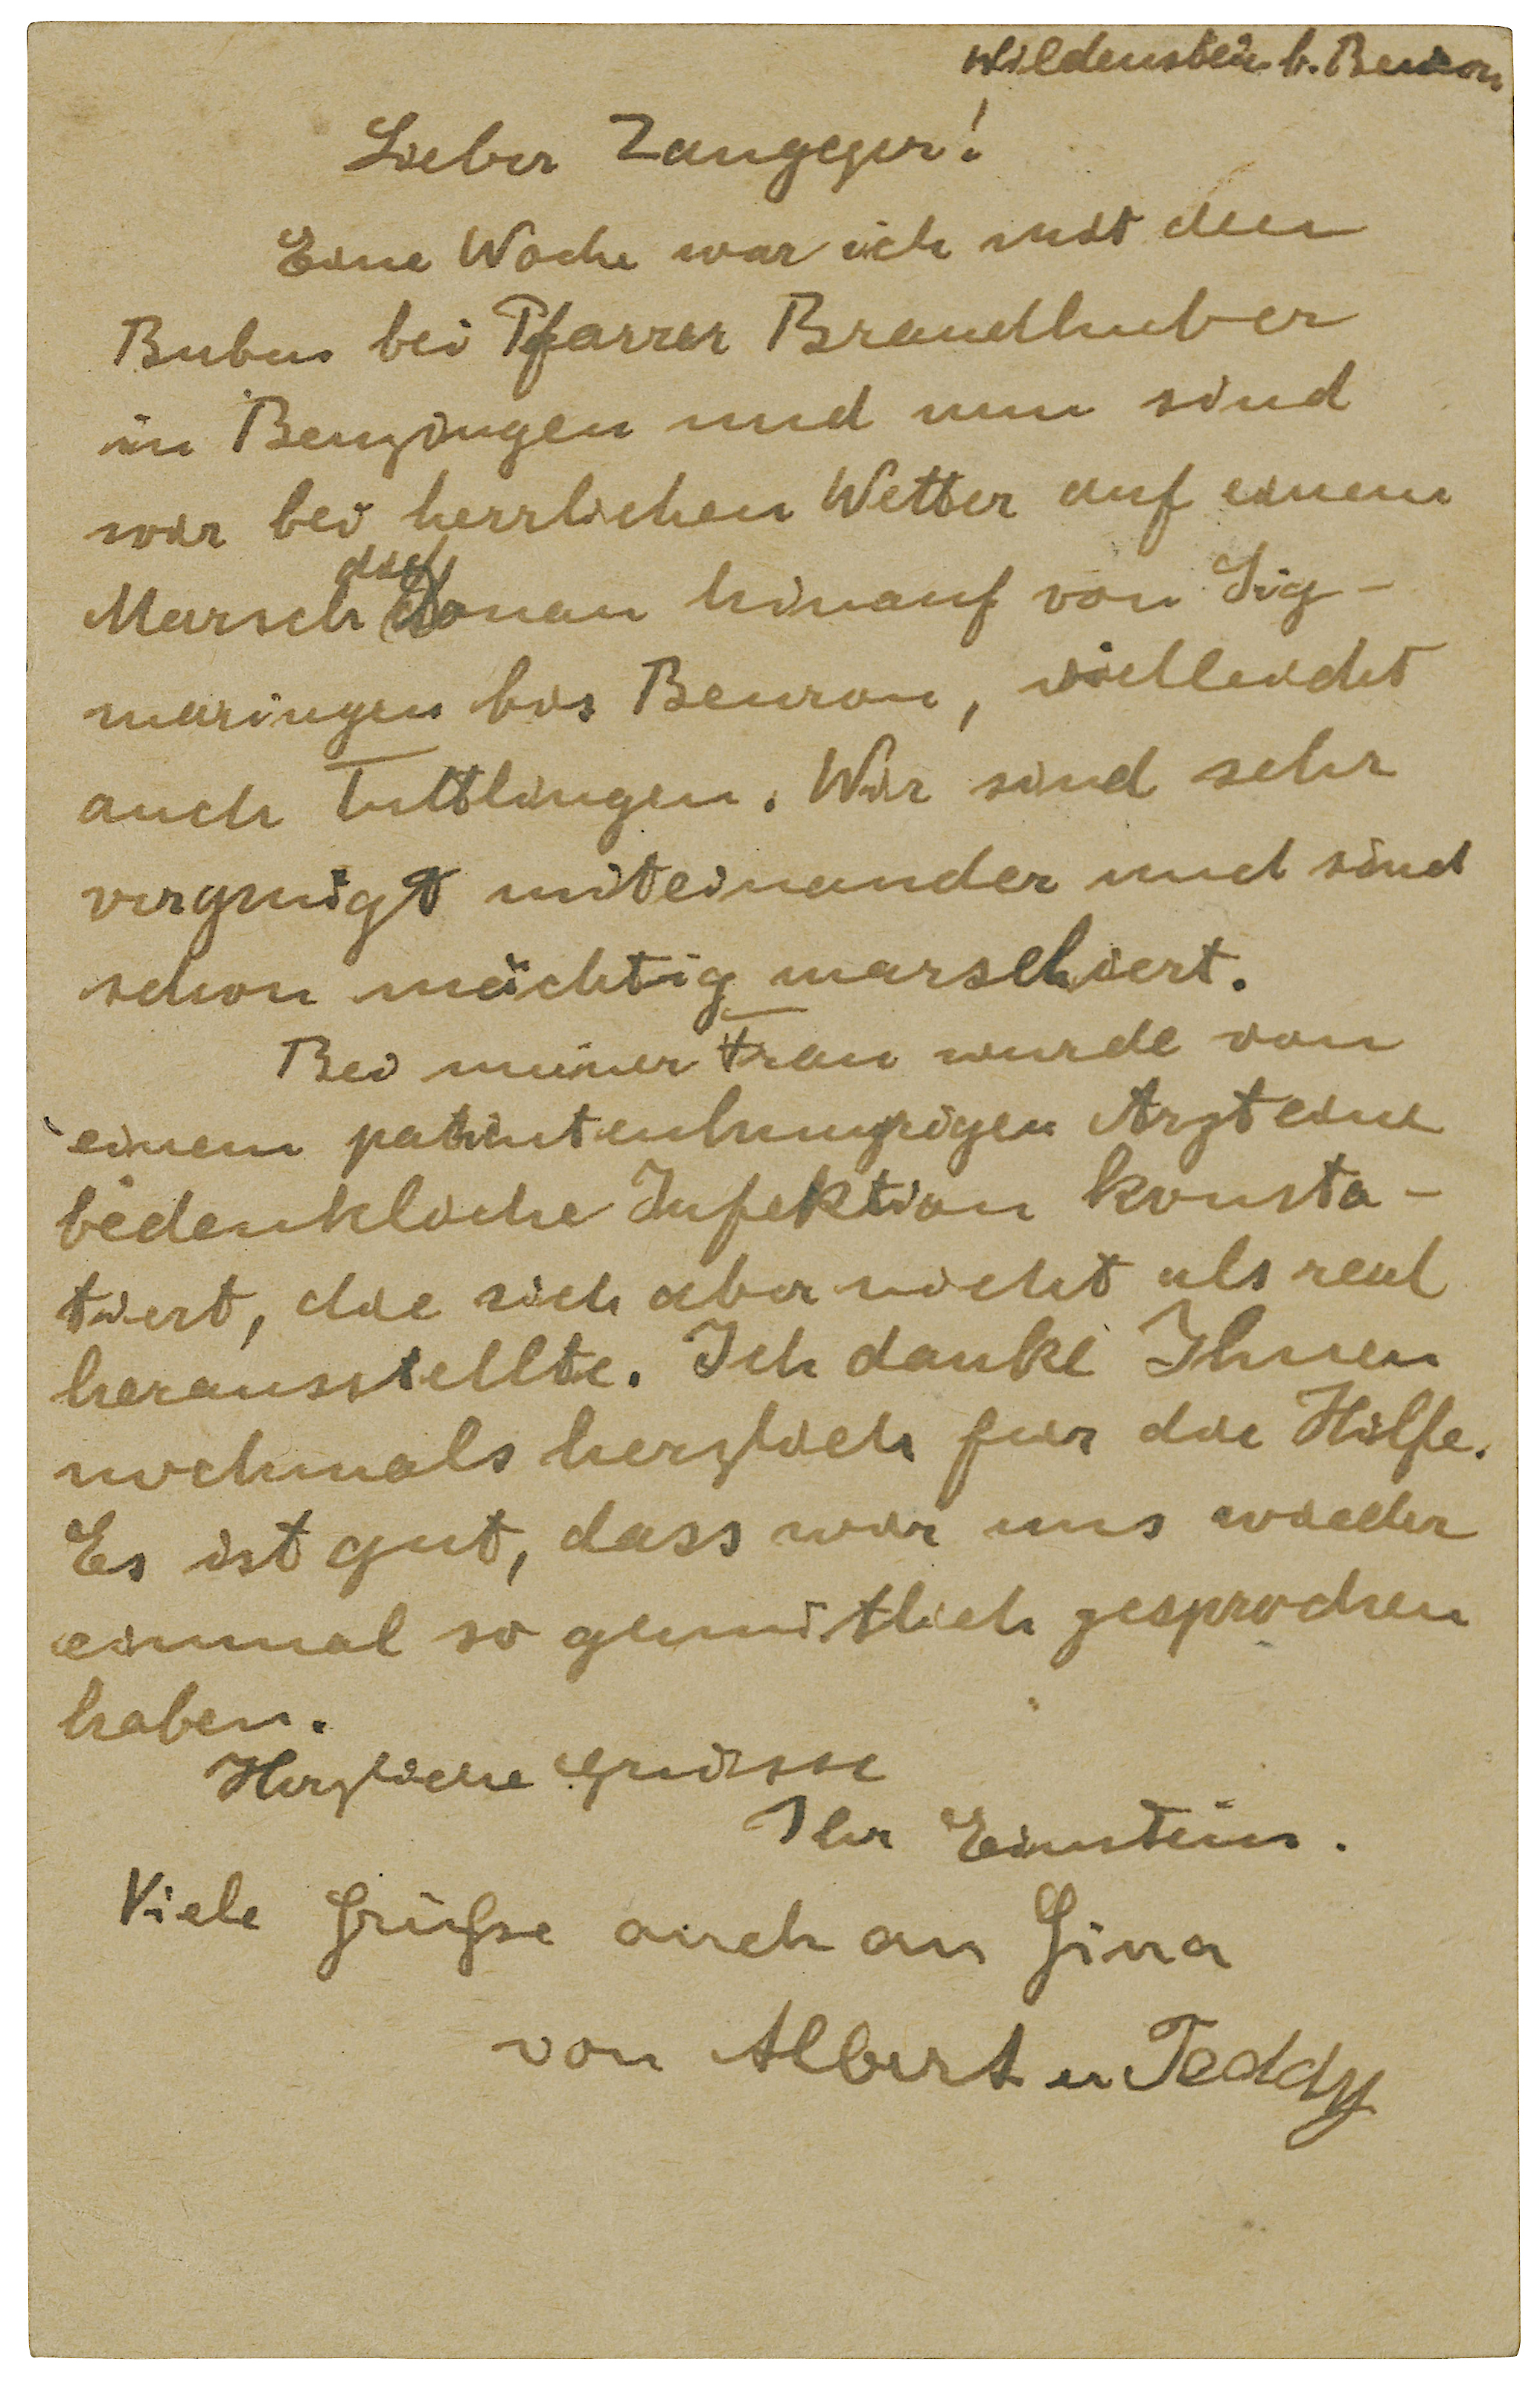 Wildenstein b. Beuron
Lieber Zangger!
Eine Woche war ich mit den
Buben bei Pfarrer Brandhuber
in Benzingen und nun sind
wir bei herrlichen Wetter auf einem
Marsch die Donau hinauf von Sig-
maringen bis Beuron, vielleicht
auch Tuttlingen. Wir sind sehr
vergnügt miteinander und sind
schon mächtig marschiert.
Bei meiner Frau wurde von
einem patientenhungrigen Arzt eine
bedenkliche Infektion konsta-
tiert, die sich aber nicht als real
herausstellte. Ich danke Ihnen
nochmals herzlich für die Hilfe.
Es ist gut, dass wir uns wieder
einmal so gemütlich gesprochen
haben.
Herzliche Grüsse
Ihr Einstein.
Viele Grüße auch an Gina
von Albert u Teddy